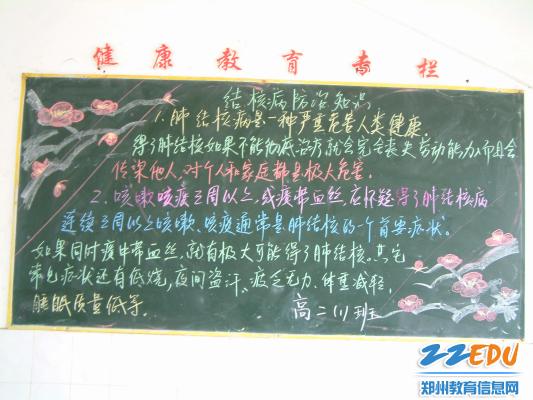 健康教育专栏
结核病防治知识
1.肺结核病是一种严重危害人类健康
得了肺结核如果不能彻底治疗就会完全丧失劳动能力而且会
传染他人,对个人和家庭都是极大危害.
2.咳嗽咳痰三周以上,或痰带血丝,应怀疑得了肺结核病
连续三周以上咳嗽、咳痰通常是肺结核的一个首要症状。
如果同时痰中带血丝,就有极大可能得了肺结核。其它
常见症状还有低烧,夜间盗汗、疲乏无力、体重减轻,
睡眠质量低等.
高二(1)班
22EDU
郑州教育信息网